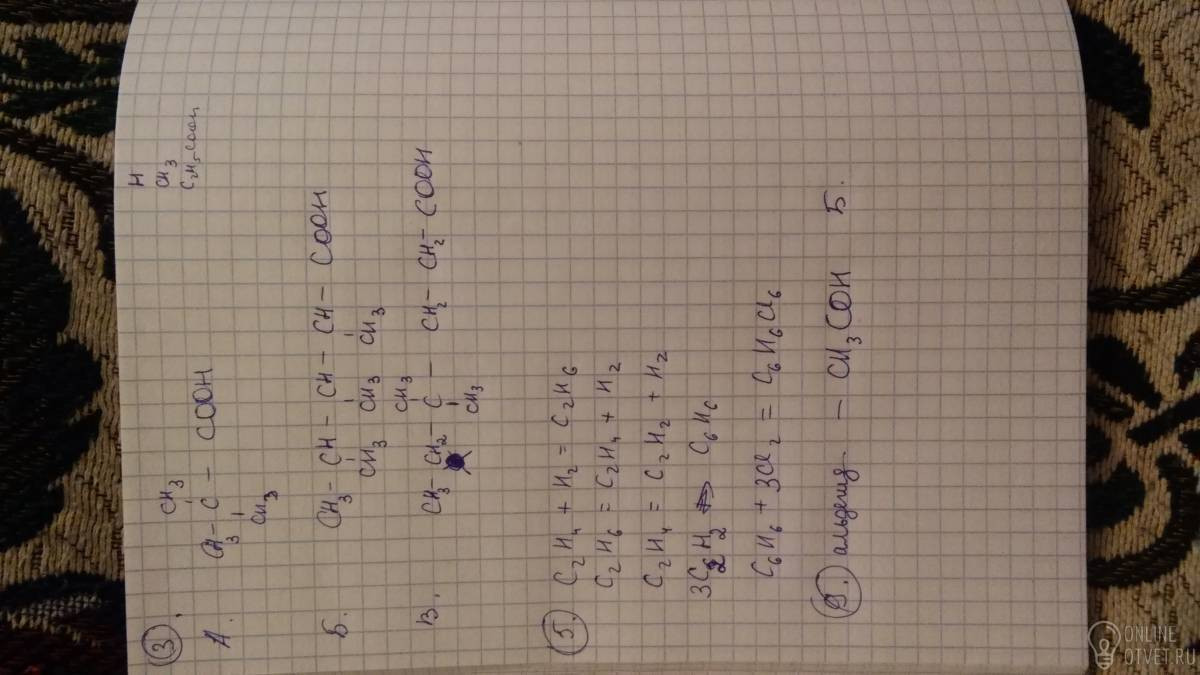 3.
H
CH3
C2H5COOH
А.
CH3
CH3 – C – COOH
CH3
Б.
CH3 – CH – CH – CH – COOH
CH3 CH3 CH3
В.
CH3
CH3 – CH2 – C – CH2 – CH2 – COOH
CH3
5.
C2H4 + H2 = C2H6
C2H6 = C2H4 + H2
C2H4 = C2H2 + H2
3C2H2 => C6H6
C6H6 + 3Cl2 = C6H6Cl6
альдегид – CH3COH Б.
ONLINE
OTVET.RU